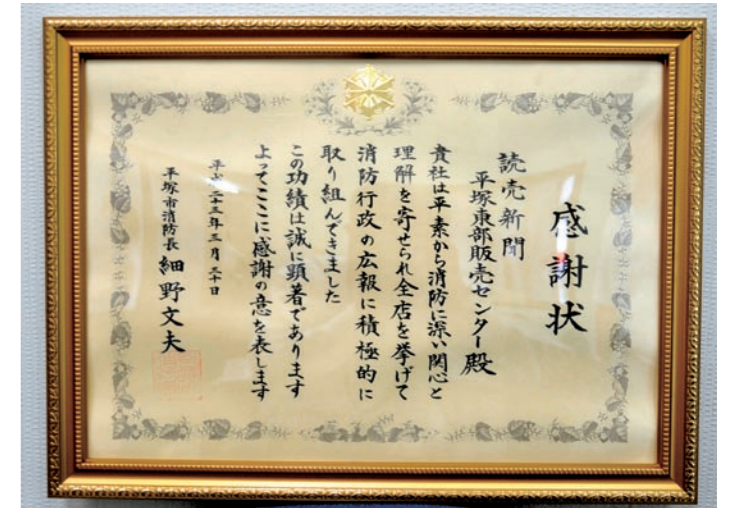 感謝状
読売新聞
平塚東部販売センター殿
貴社は平素から消防に深い関心と
理解を寄せられ全店を挙げて
消防行政の広報に積極的に
取り組んできました
この功績は誠に顕著であります
よってここに感謝の意を表します
平成二十三年三月三十日
平塚市消防長 細野文夫